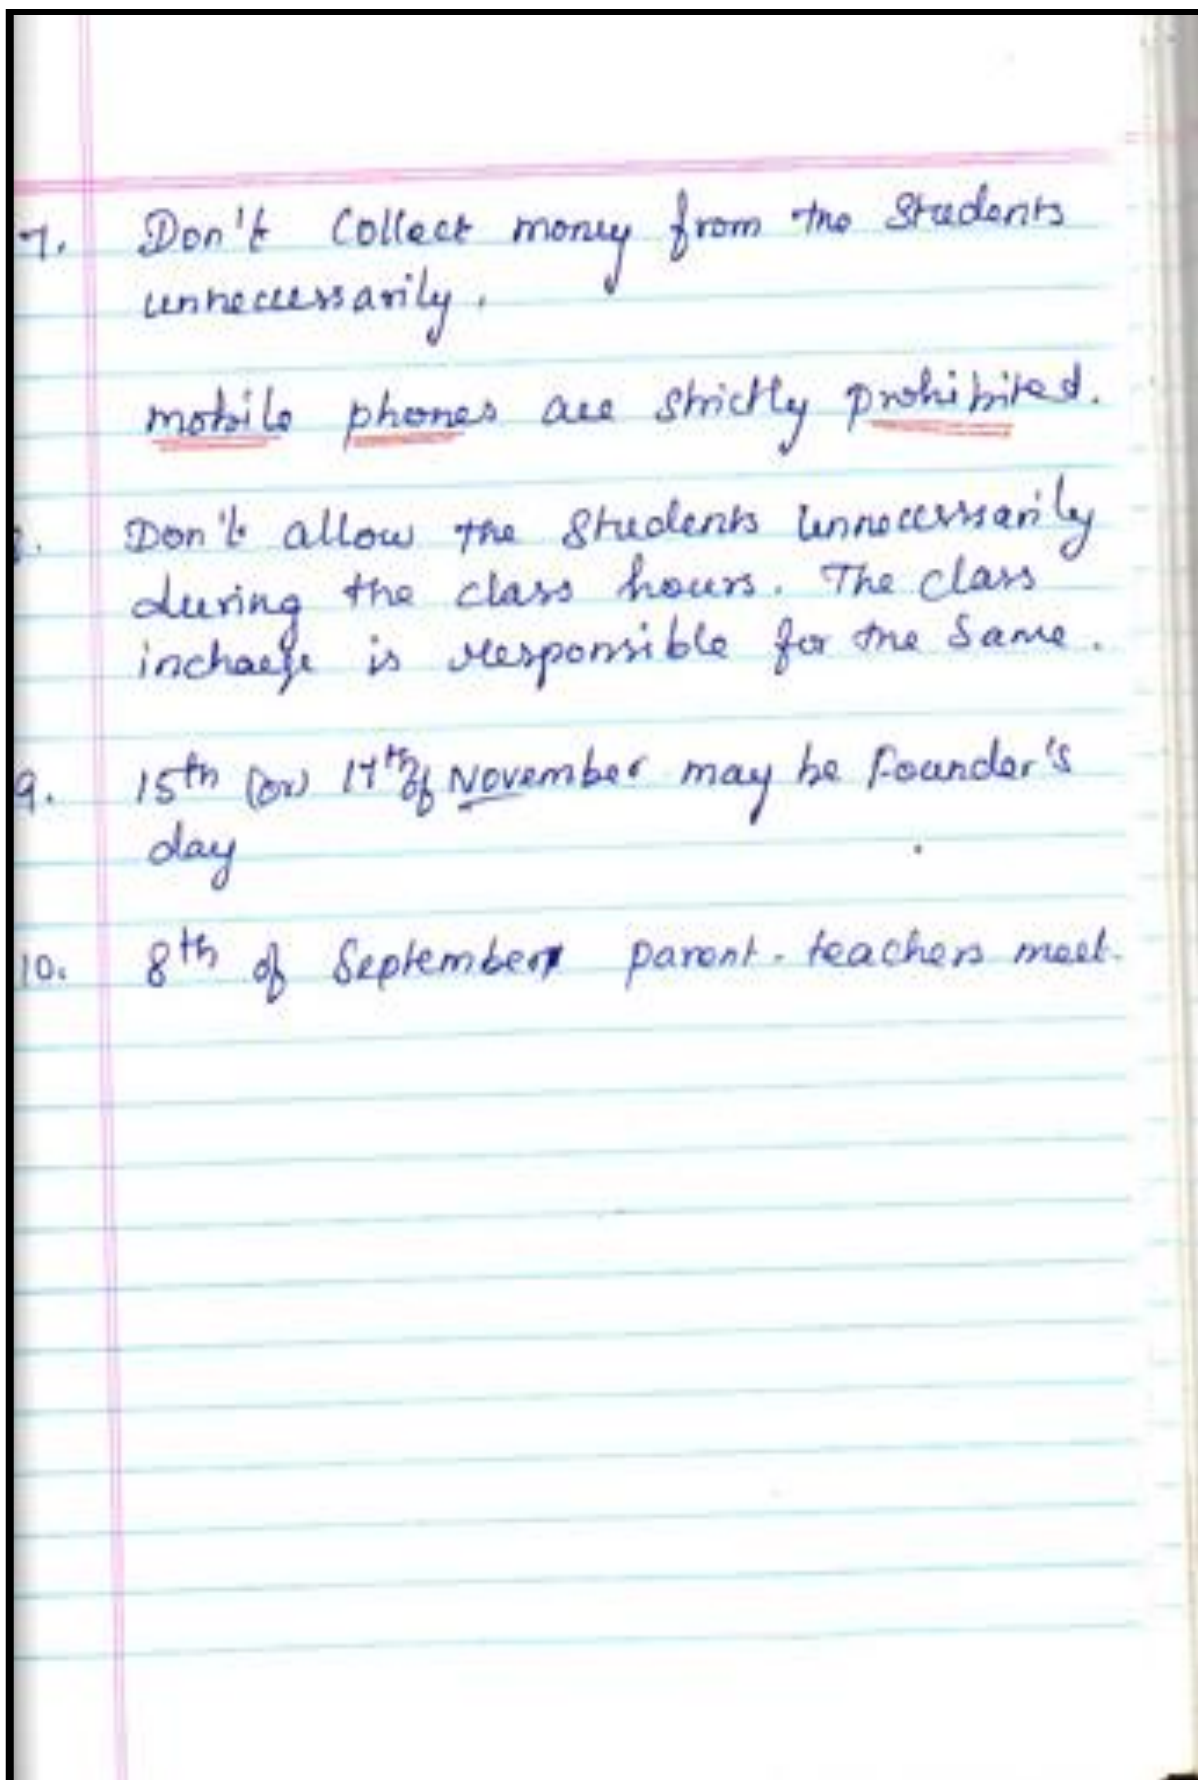 7. Don't Collect money from the Students
unnecessarily.
mobile phones are strictly prohibited.
8. Don't allow the Students unnecessarily
during the class hours. The class
incharge is responsible for the Same.
9. 15th (or) 17th of November may be Founder's
day
10. 8th of September parent-teachers meet.